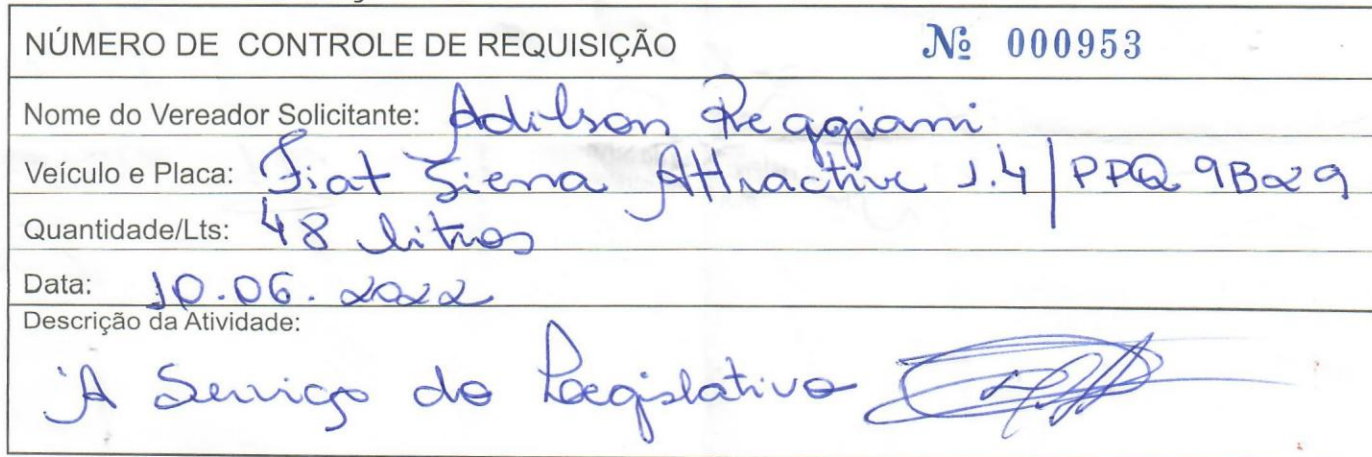 NÚMERO DE CONTROLE DE REQUISIÇÃO Nº 000953
Nome do Vereador Solicitante: Adilson Reggiani
Veículo e Placa: Fiat Siena Attractive 1.4 | PPQ 9B29
Quantidade/Lts: 48 litros
Data: 10.06.2022
Descrição da Atividade:
À Serviço do Legislativo